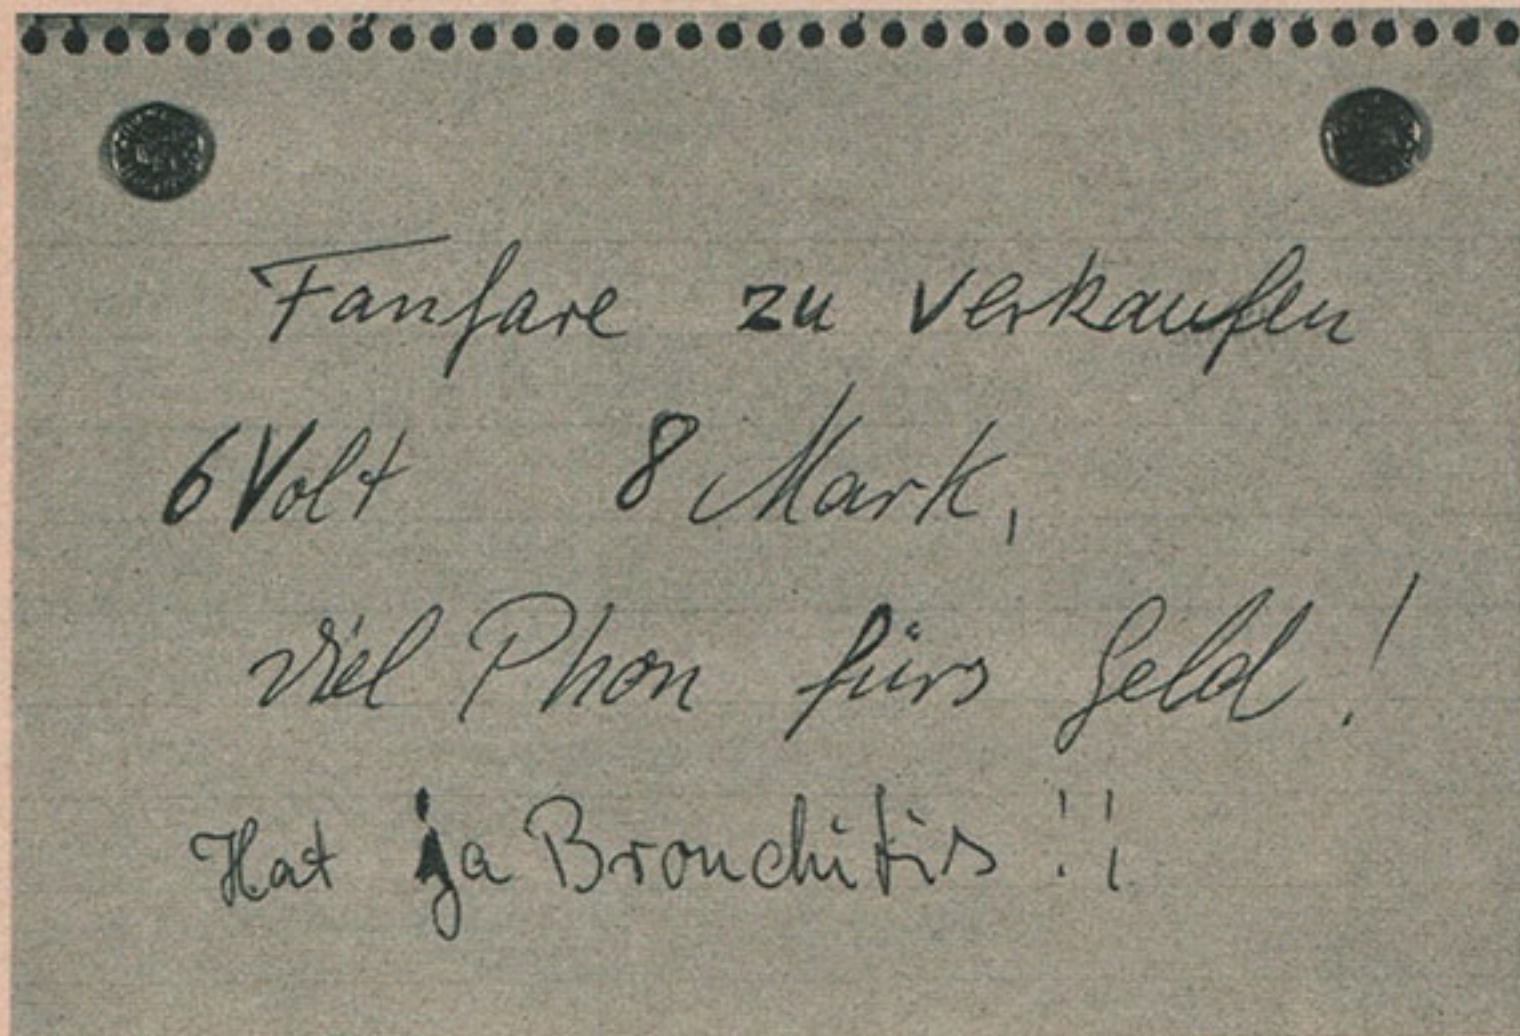 Fanfare zu verkaufen
6 Volt 8 Mark,
viel Phon fürs Geld!
Hat ja Bronchitis!!